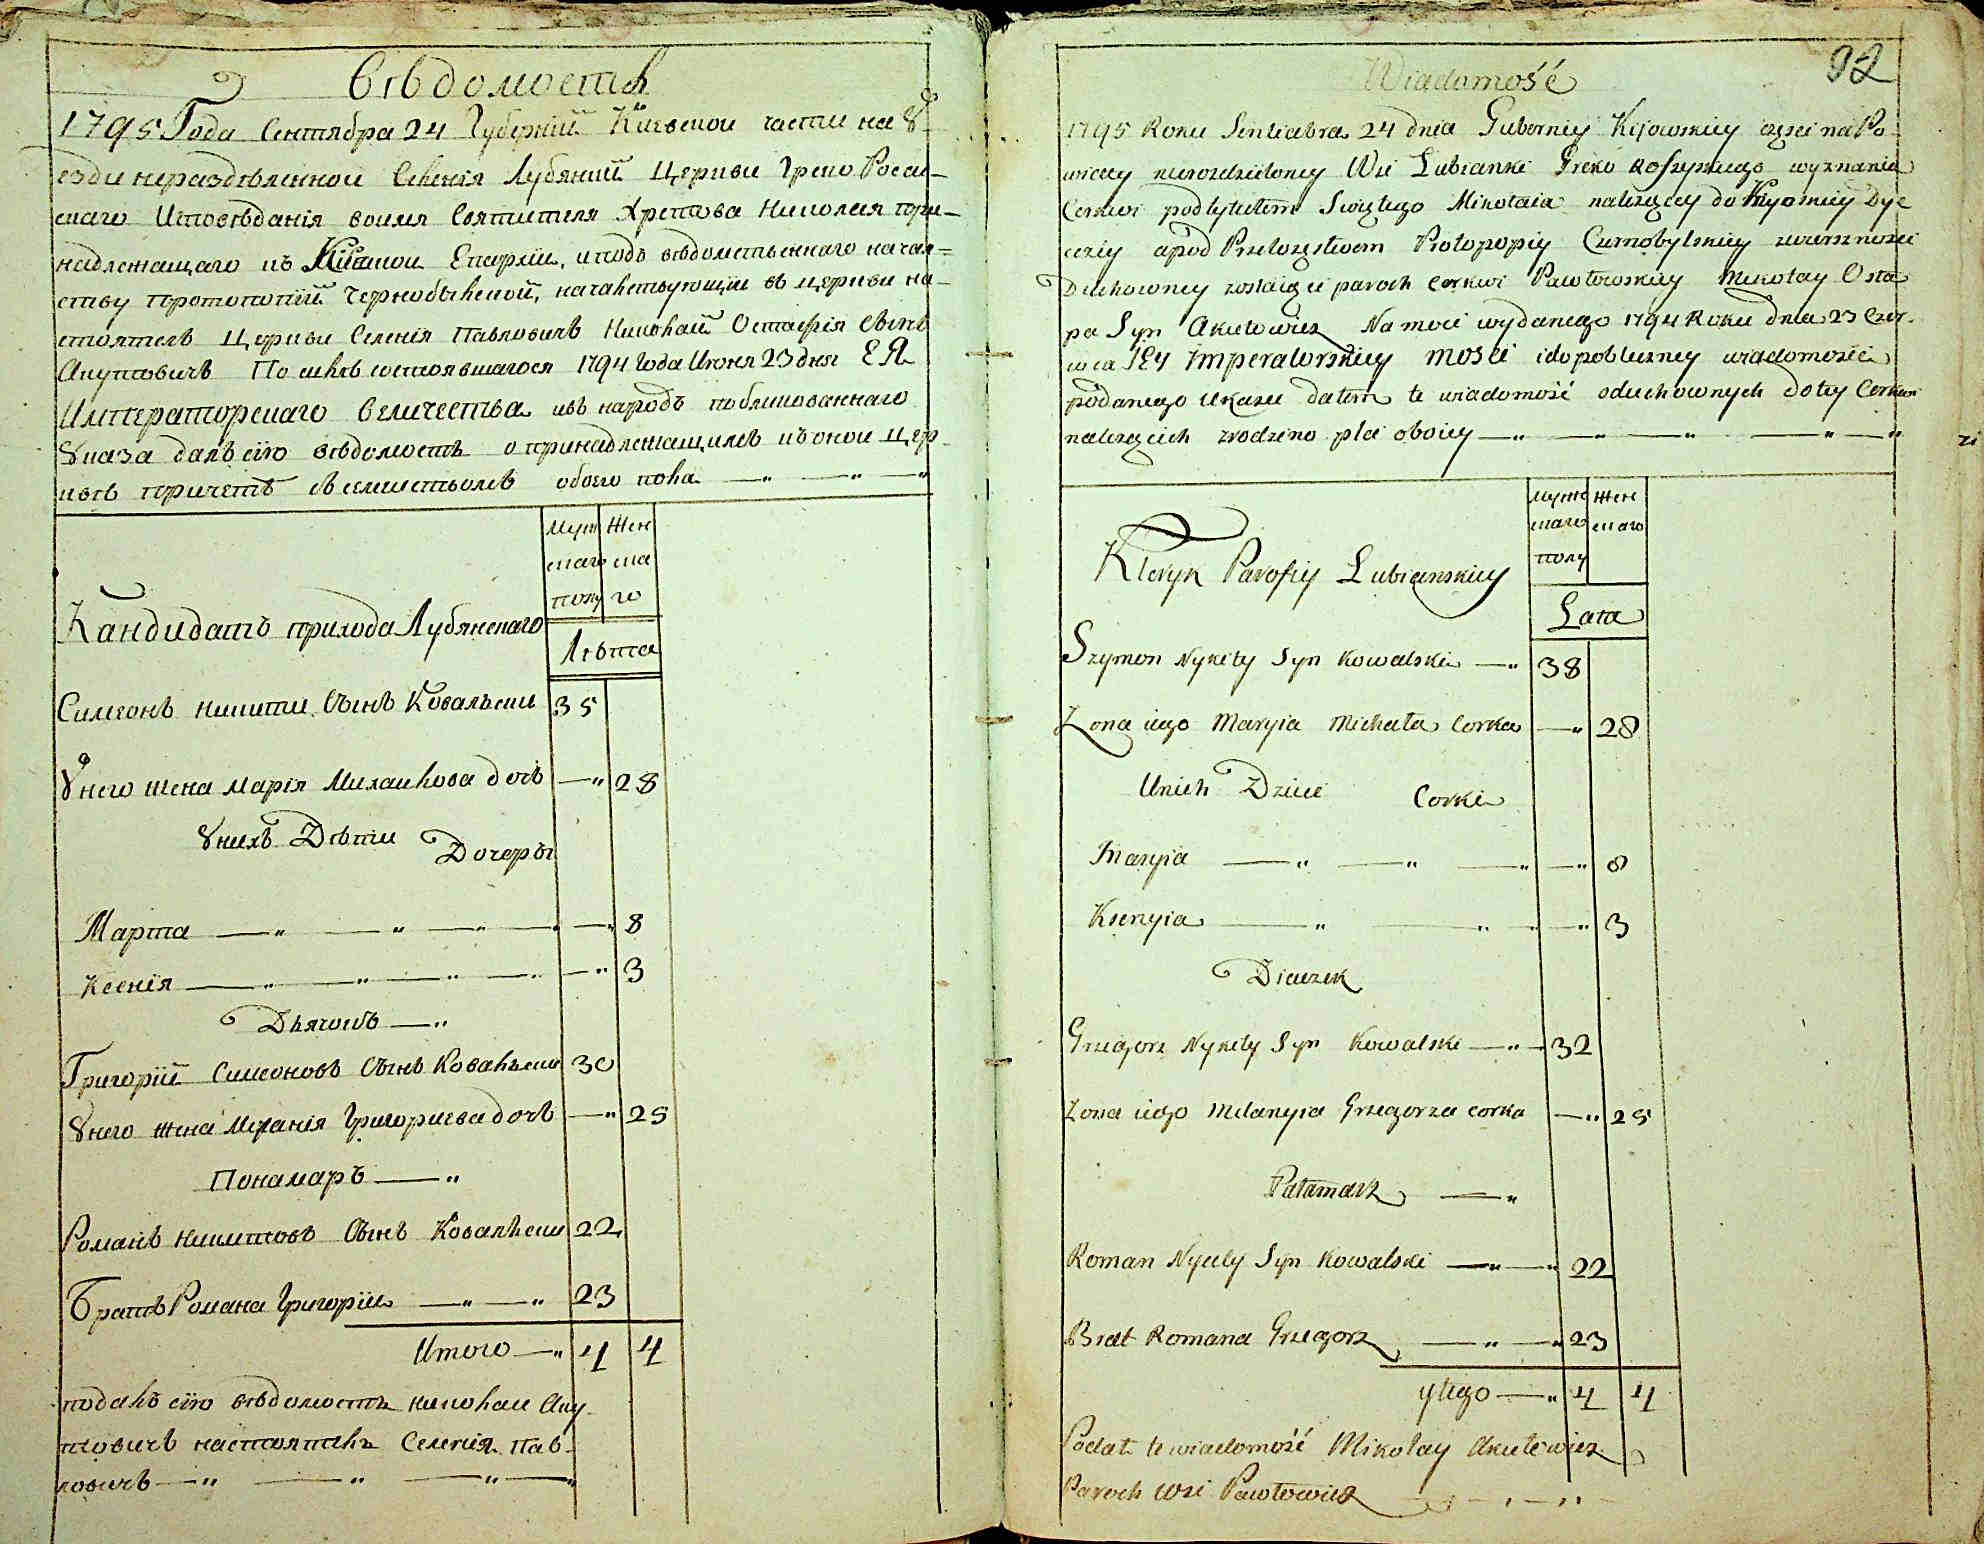 Вѣдомость
1795 Года Сентября 24 Губерніи Кіевской части на У-
езди нераздѣленной Селенія Лубянки Церкви Греко Росси-
скаго Исповѣданія воимя Святителя Христова Николая при-
надлежащаго къ Епархіи, иподъ вѣдомственнаго начал-
ству протопопіи Чернобыльской, началствующій въ церкви на-
стоятель Церкви Селенія Павловичъ Николай Остафія Сынъ
Акутовичъ По силѣ состоявшагося 1794 Года Июня 23 дня Е Я
Императорскаго Величества ивъ народъ публикованнаго
Указа далъ сію вѣдомость о принадлежащимъ къ оной Цер-
квѣ причетѣ съ семействомъ обоего пола
Муж Жен
скаго ска
полу го
Кандидатъ прихода Лубянскаго
Лѣта
Симеонъ Никити Сынъ Ковальски 35
Унего жена Марія Михайлова дочь 28
Унихъ Дѣти Дочеры
Марта 8
Ксенія 3
Дьячокъ
Григорій Симеоновъ Сынъ Ковальски 30
Унего жена Меланія Григориева дочь 25
Понамаръ
Романъ Никитовъ Сынъ Ковальски 22
Братъ Романа Григорій 23
Итого 4 4
подалъ сію вѣдомость Николай Аку-
товичъ настоятель Селенія Пав-
ловичъ
92
Wiadomość
1795 Roku Sentiabra 24 dnia Guberniy Kijowskiey części na Po-
wiaty nierozdzieloney Wsi Lubianki Greko Rossyskiego wyznania
Cerkwi podtytułem Swiętego Mikołaia należącey do Kijowskiey Dye
ceziy apod Przełożęstwem Protopopiy Czarnobylskiey zwierzchności
Duchowney zostaiący paroch cerkwi Pawłowskiey Mikołay Osta
pa Syn Akutowicz Na mocy wydanego 1794 Roku dnia 23 Czer-
wca IEy Imperatorskiey Mości idopobliczney wiadomości
podanego Ukazu dałem te wiadomość oduchownych dotey Cerkwi
należących zrodzino płci oboiey
муже жен
скаго скаго
полу
Kleryk Parofiy Lubianskiey
Lata
Szymon Nykity Syn Kowalski 38
Zona iego Maryia Michała Corka 28
Unich Dzieci Corki
Maryia 8
Ksenyia 3
Diaczek
Grzegorz Nykity Syn Kowalski 32
Zona iego Melanyia Grzegorza corka 25
Pałamarz
Roman Nykity Syn Kowalski 22
Brat Romana Grzegorz 23
4 4
Podał te wiadomość Mikołay Akutowicz
Paroch Wsi Pawłowicz